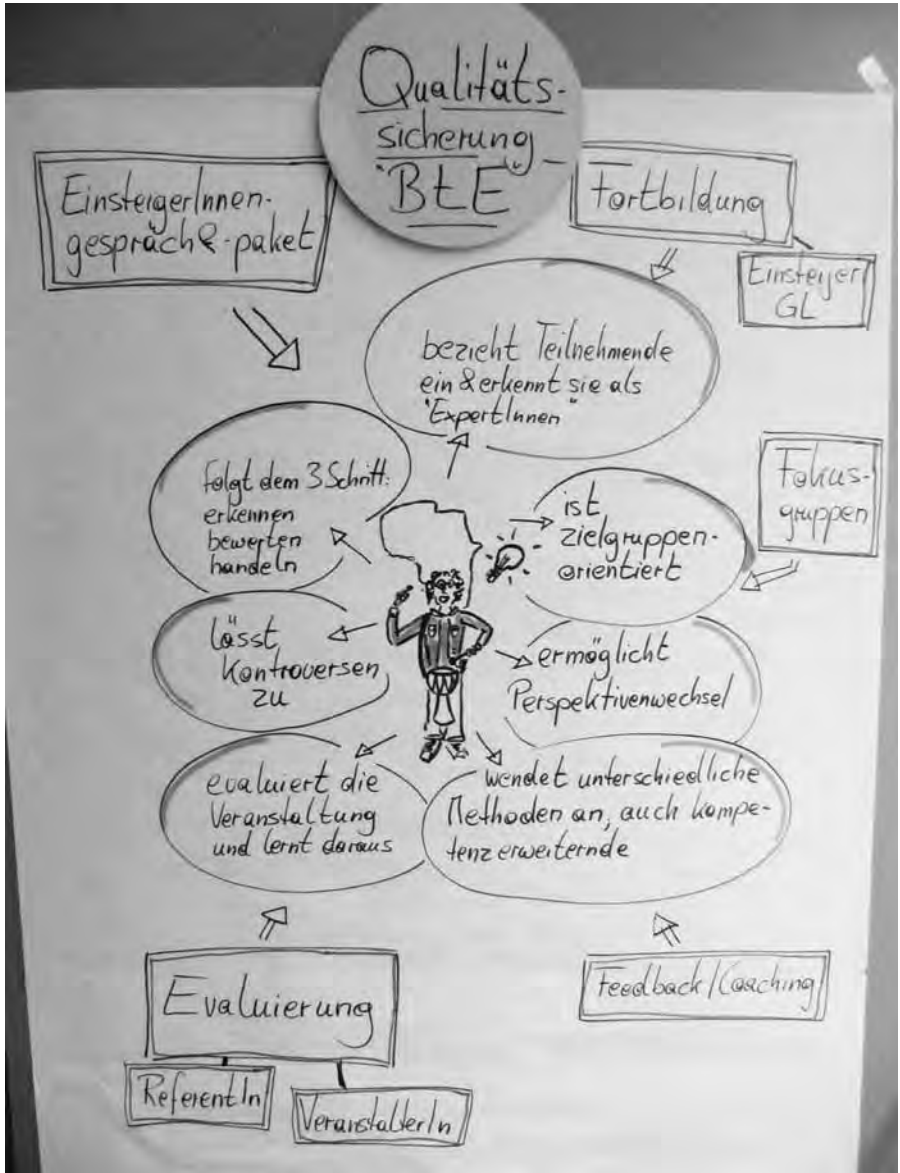 Qualitäts-
sicherung
"BtE"
EinsteigerInnen-
gespräch&-paket
Fortbildung
Einsteiger
GL
bezieht Teilnehmende
ein & erkennt sie als
"ExpertInnen"
folgt dem 3 Schritt:
erkennen
bewerten
handeln
ist
zielgruppen-
orientiert
Fokus-
gruppen
lässt
Kontroversen
zu
ermöglicht
Perspektivenwechsel
evaluiert die
Veranstaltung
und lernt daraus
wendet unterschiedliche
Methoden an, auch kompe-
tenzerweiternde
Evaluierung
ReferentIn
VeranstalterIn
Feedback/Coaching